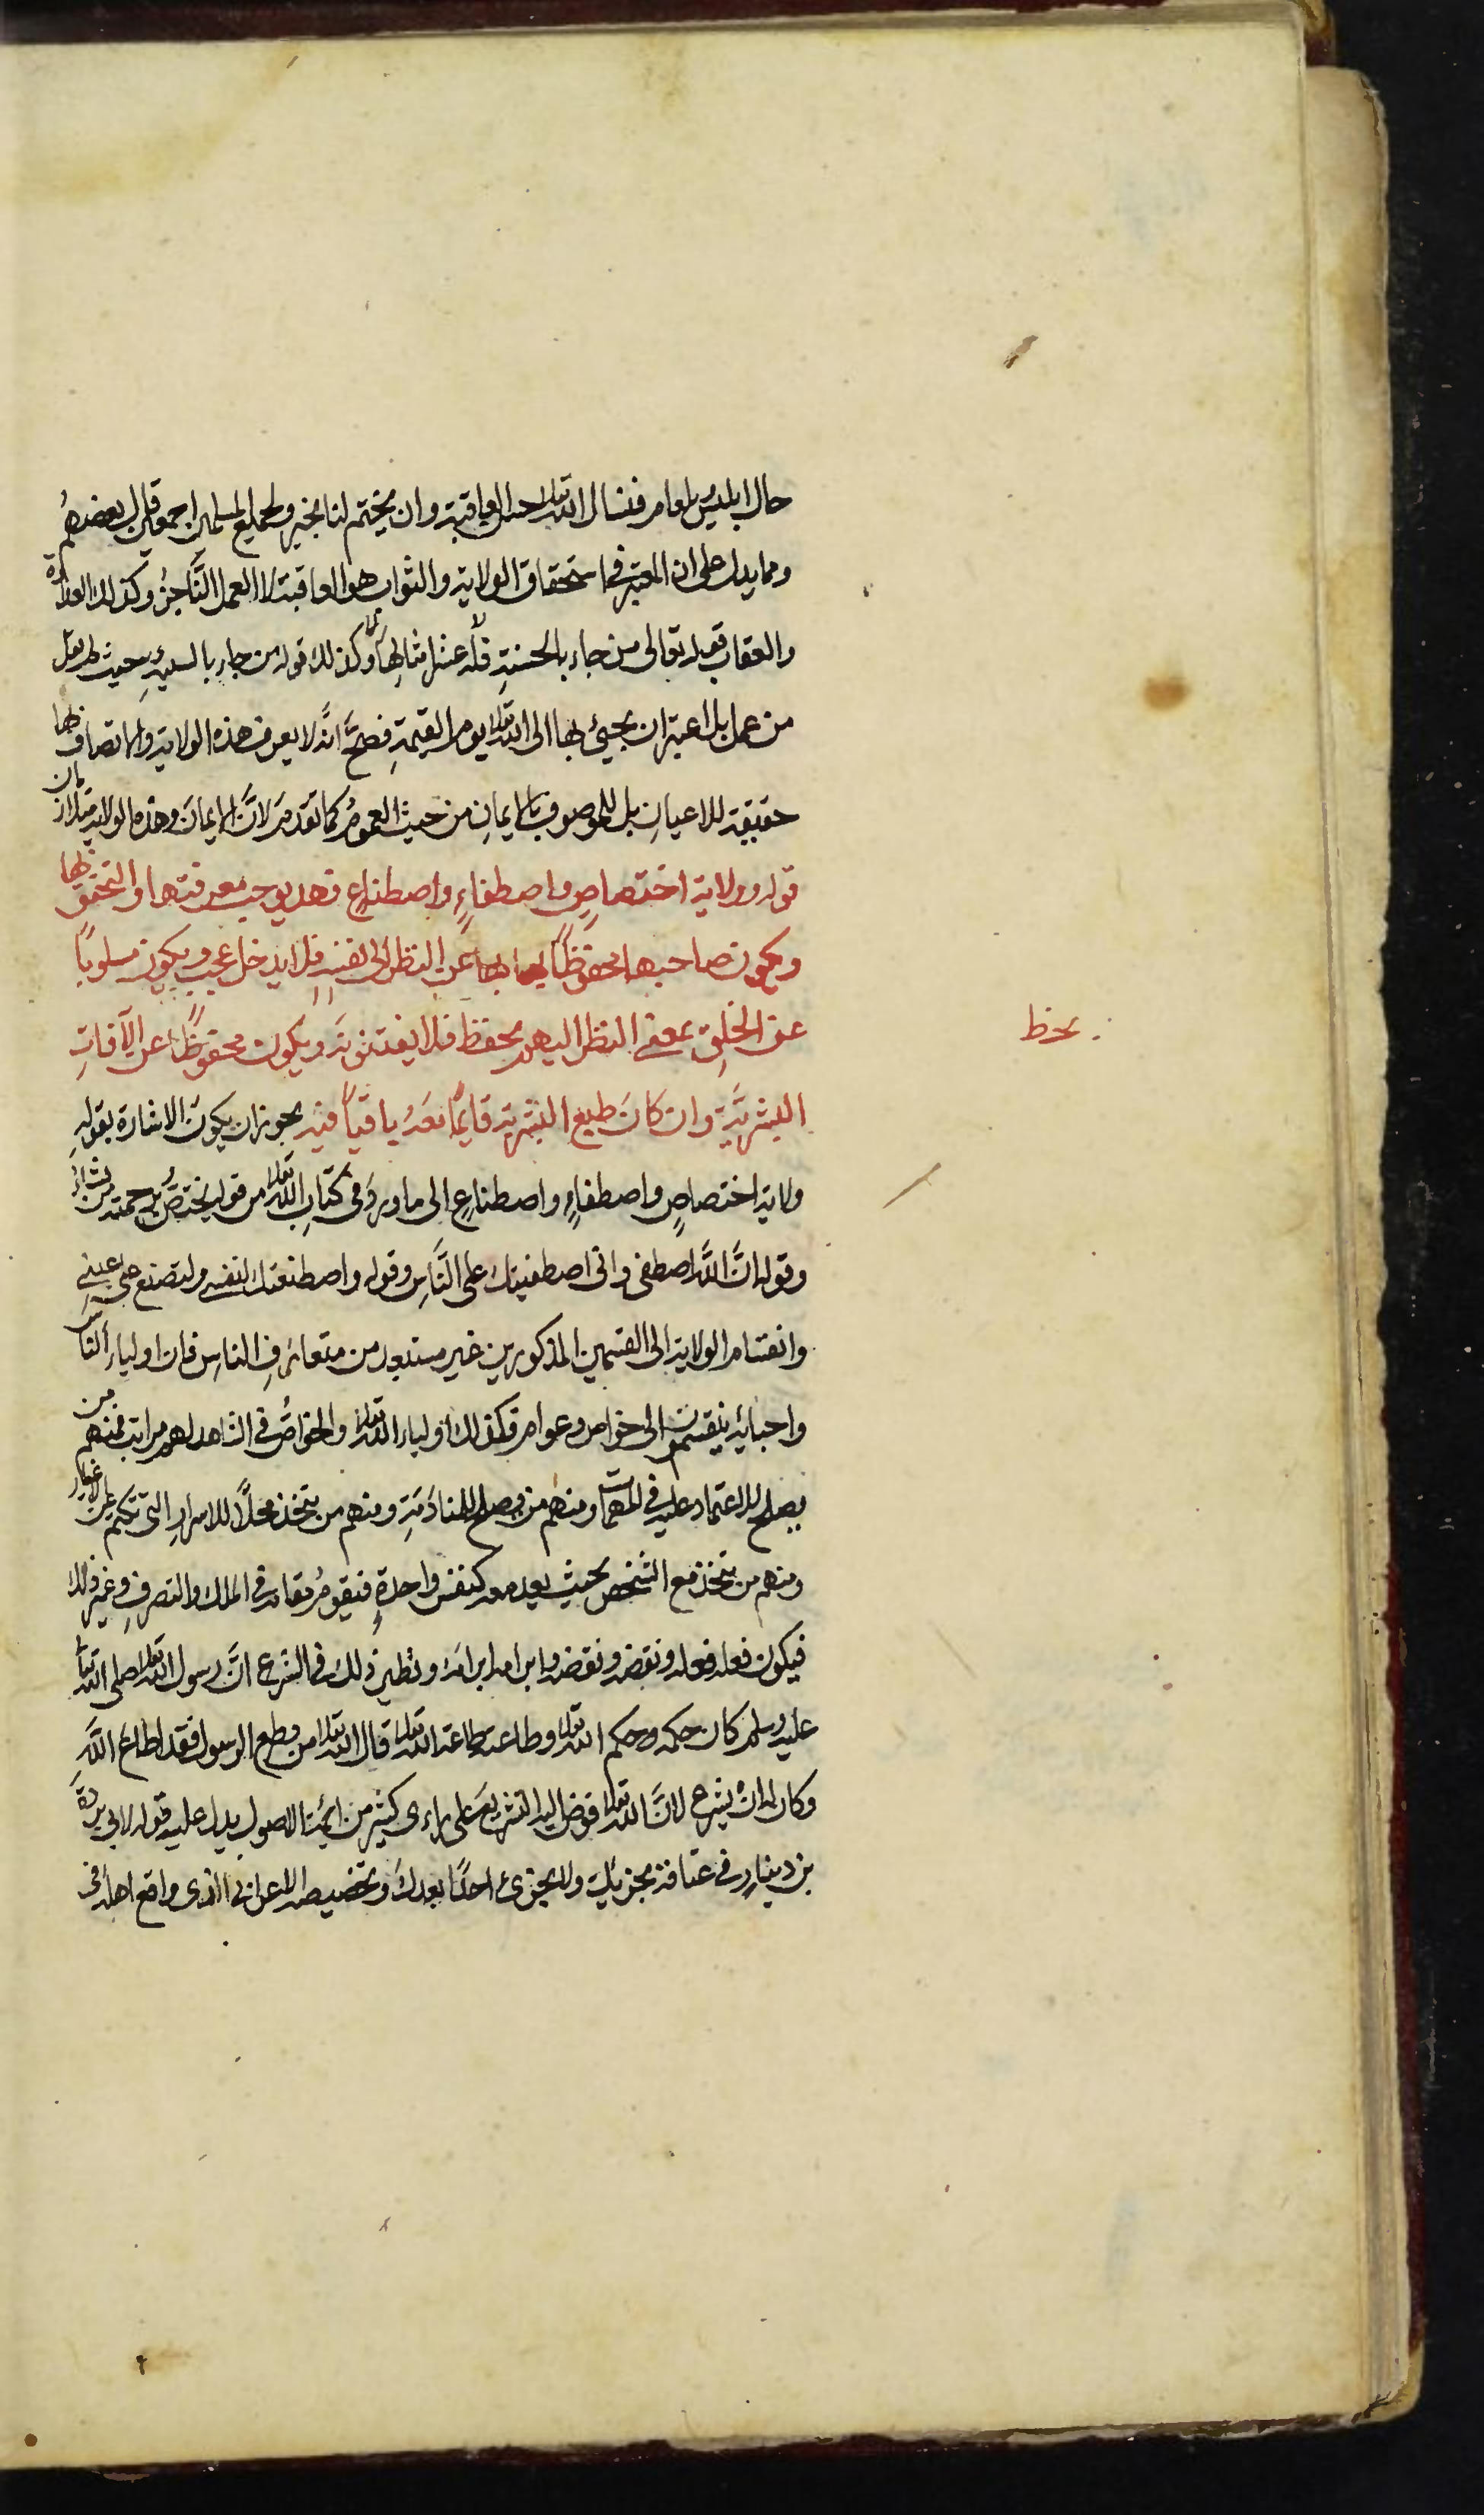 حال ابليس بلعام فنسال الله تعالى حسن العاقبة وان يختم لنا بخير ولجميع المسلمين اجمعين قال بعضهم
ومما يدل على ان المعتبر في استحقاق الولاية والثواب هو العاقبة لا العمل الناجز وكذلك العداوة
والعقاب قوله تعالى من جاء بالحسنة فله عشر امثالها وكذلك قوله من جاء بالسيئة حيث لم يقل
من عمل بل اعتبر ان يجيئ بها الى الله تعالى يوم القيمة فصح انه لا يعرف هذه الولاية والاتصاف بها
حقيقة للاعيان بل للموصوف بالايمان من حيث العموم كما تقدم لان الايمان وهذه الولاية متلازمان
قوله وولاية اختصاص واصطفاء واصطناع فهذه يوجب معرفتها والتحقق بها
ويكون صاحبها محفوظا عن النظر الى نفسه فلا يدخله عجب ويكون مسلوبا
عن الخلق بمعنى النظر اليهم بحفظ فلا يفتنونه ويكون محفوظا عن الآفات
بحظ
البشرية وان كان طبع البشرية قائما معه باقيا فيه يجوز ان يكون الاشارة بقوله
ولاية اختصاص واصطفاء واصطناع الى ما ورد في كتاب الله تعالى من قوله يختص برحمته من يشاء
وقوله ان الله اصطفى واني اصطفيتك على الناس وقوله واصطنعتك لنفسي ولتصنع على عيني
وانقسام الولاية الى القسمين المذكورين غير مستبعد من متعارف الناس فان اولياء الناس
واحبائه ينقسمون الى خواص وعوام فكذلك اولياء الله تعالى والخواص في الشاهد لهم مراتب فمنهم من
يصلح للاعتماد عليه في المهمات ومنهم من يصلح للمنادمة ومنهم من يتخذ محلا للاسرار التي تكتم عن الاغيار
ومنهم من يتخذ مع الشخص بحيث يعد معه كنفس واحدة فيقوم مقامه في الملك والتصرف وغير ذلك
فيكون فعله فعله ونقضه ونقضه وابرامه ابرامه ونظير ذلك في الشرع ان رسول الله تعالى صلى الله تعالى
عليه وسلم كان حكمه وحكم الله تعالى وطاعته طاعة الله تعالى قال الله تعالى من يطع الرسول فقد اطاع الله
وكان له ان يشرع لان الله تعالى فوض اليه التشريع على راءى كثير من ائمة الاصول يدل عليه قوله لابي بردة
بن دينار في عناقه تجزيك ولا يجزئ احدا بعدك وتخصيصه الاعرابي الذي واقع اهله في